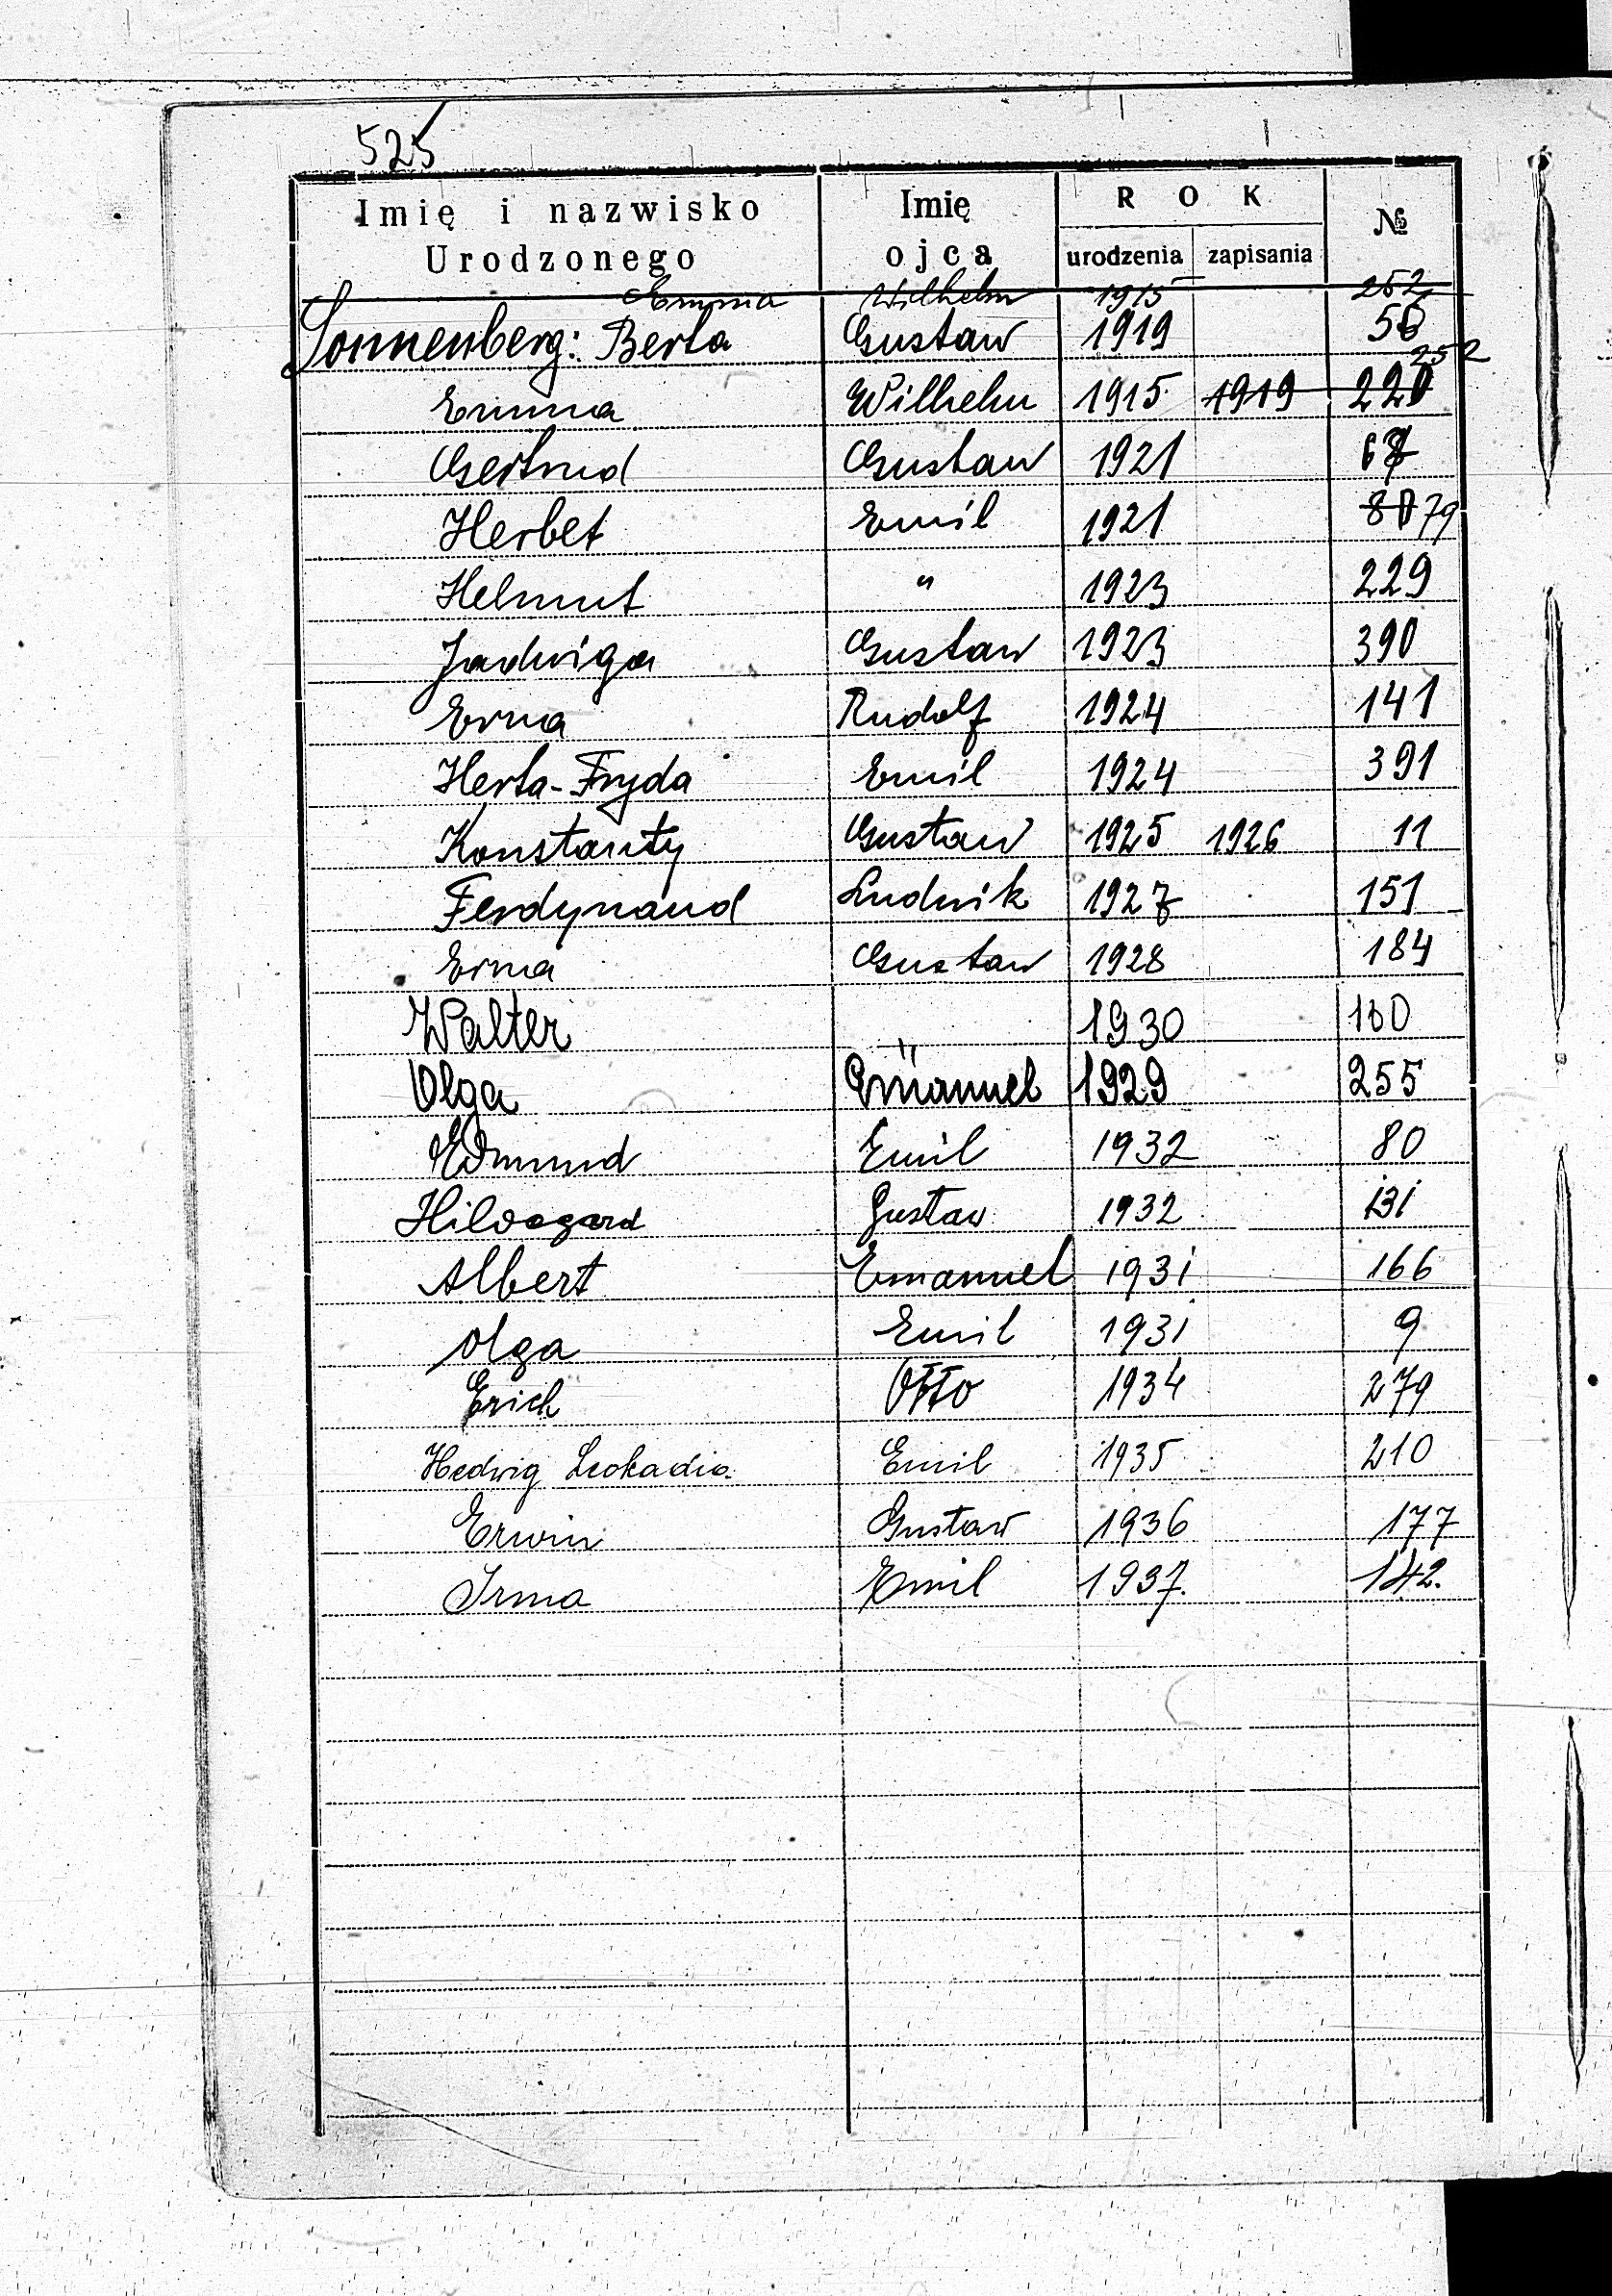 525
Imię i nazwisko Urodzonego Imię ojca ROK urodzenia zapisania №
Emma Wilhelm 1915 252
Sonnenberg: Berta Gustaw 1919 56
252
Emma Wilhelm 1915 1919 220
Gertrud Gustaw 1921
Herbet Emil 1921 80 79
Helmut " 1923 229
Jadwiga Gustaw 1923 390
Erna Rudolf 1924 141
Herta-Fryda Emil 1924 391
Konstanty Gustaw 1925 1926 11
Ferdynand Ludwik 1927 151
Erna Gustaw 1928 184
Walter " 1930 160
Olga Emanuel 1929 255
Edmund Emil 1932 80
Hildegard Gustaw 1932 131
Albert Emanuel 1931 166
Olga Emil 1931 9
Erich Otto 1934 279
Hedwig Leokadia Emil 1935 210
Erwin Gustaw 1936 177
Irma Emil 1937. 142.